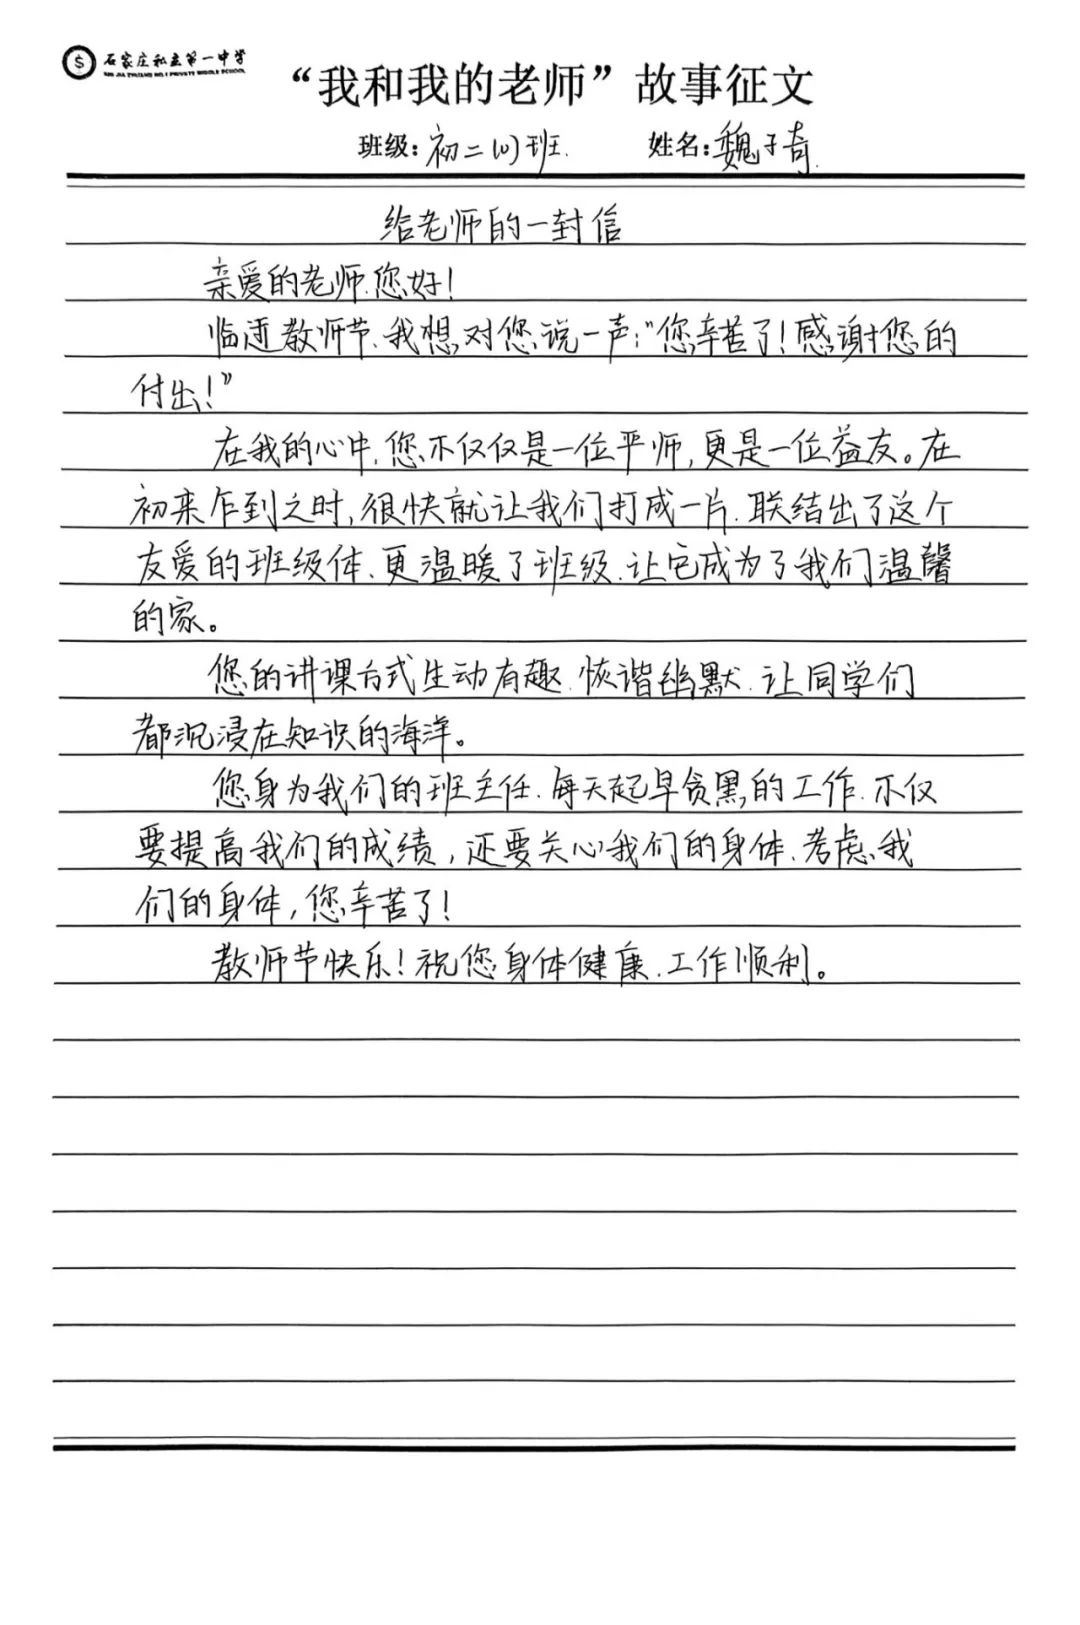 石家庄私立第一中学
SHI JIA ZHUANG NO.1 PRIVATE MIDDLE SCHOOL
“我和我的老师”故事征文
班级:初二(1)班. 姓名:魏子奇.
给老师的一封信
亲爱的老师,您好!
临近教师节,我想对您说一声:“您辛苦了!感谢您的
付出!”
在我的心中,您不仅仅是一位严师,更是一位益友。在
初来乍到之时,很快就让我们打成一片,联结出了这个
友爱的班级体,更温暖了班级,让它成为了我们温馨
的家。
您的讲课方式生动有趣,恢谐幽默,让同学们
都沉浸在知识的海洋。
您身为我们的班主任,每天起早贪黑的工作,不仅
要提高我们的成绩,还要关心我们的身体,考虑我
们的身体,您辛苦了!
教师节快乐!祝您身体健康,工作顺利。